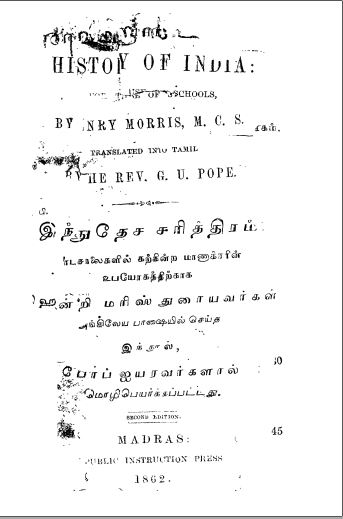 HISTOY OF INDIA:
OF SCHOOLS,
BY HENRY MORRIS, M. C. S.
TRANSLATED INTO TAMIL
BY THE REV. G. U. POPE.
இந்துதேச சரித்திரம்
பாடசாலைகளில் கற்கின்ற மாணாக்கரின்
உபயோகத்திற்காக
ஹன்றி மரிஸ் துரையவர்கள்
இங்கிலேய பாஷையில் செய்த
இந்நூல்,
போப் ஐயரவர்களால்
மொழிபெயர்க்கப்பட்டது.
SECOND EDITION.
45
MADRAS:
PUBLIC INSTRUCTION PRESS
1862.